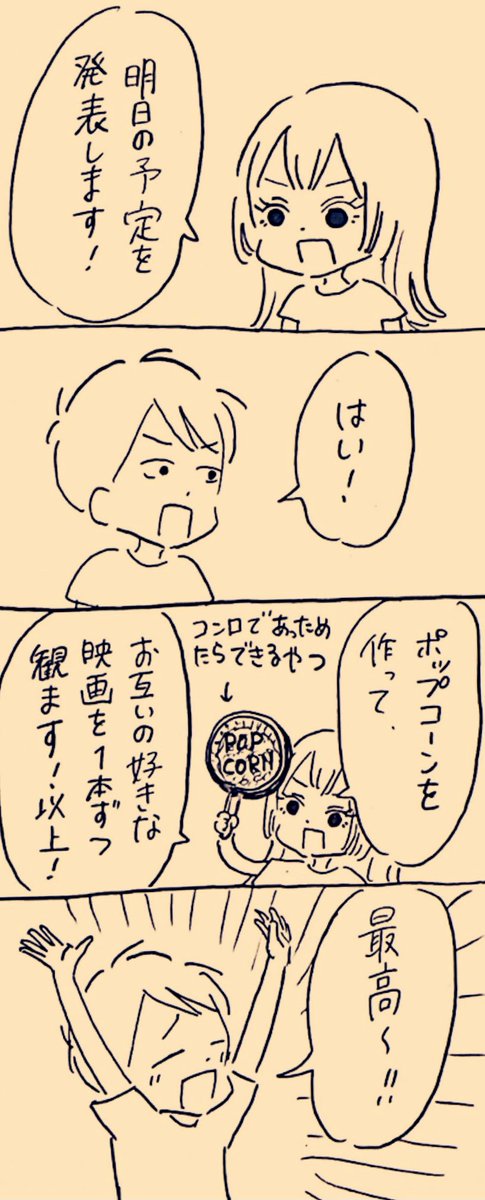 明日の予定を
発表します!
はい!
ポップコーンを
作って、
コンロであっため
たらできるやつ
POP
CORN
お互いの好きな
映画を1本ずつ
観ます!以上!
最高〜!!